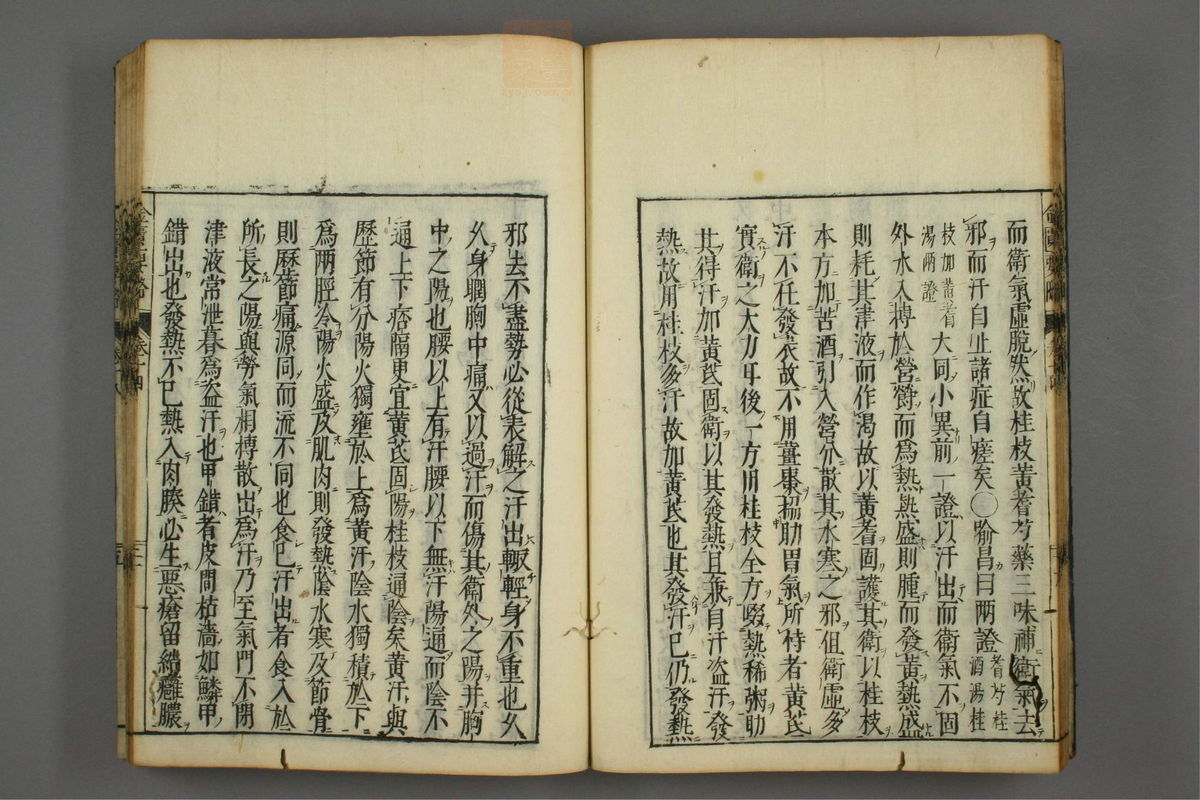 而衛氣虛脫然故桂枝黃耆芍藥三味補衛氣去
邪而汗自止諸症自瘥矣〇喻昌曰兩證耆芍桂酒湯桂
枝加黃耆湯兩證大同小異前一證以汗出而衛氣不固
外水入搏於營鬱而為熱熱盛則腫而發黃熱盛
則耗其津液而作渴故以黃耆固護其衛以桂枝
本方加苦酒引入營分散其水寒之邪但衛虛多
汗不任發表故不用薑棗協助胃氣所恃者黃芪
實衛之大力耳後一方用桂枝全方啜熱稀粥助
其得汗加黃芪固衛以其發熱且兼自汗盜汗發
熱故用桂枝多汗故加黃芪也其發汗已仍發熱
邪去不盡勢必從表解之汗出輙輕身不重也久
久身瞤胸中痛又以過汗而傷其衛外之陽并胸
中之陽也腰以上有汗腰以下無汗陽通而陰不
通上下痞隔更宜黃芪固陽桂枝通陰矣黃汗與
歷節有分陽火獨壅於上為黃汗陰水獨積於下
為兩脛冷陽火盛及肌肉則發熱陰水寒及節骨
則歷節痛源同而流不同也食已汗出者食入於
所長之陽與勞氣相搏散出為汗乃至氣門不閉
津液常泄暮為盜汗也甲錯者皮間枯濇如鱗甲
錯出也發熱不已熱入肉腠必生惡瘡留結癰膿